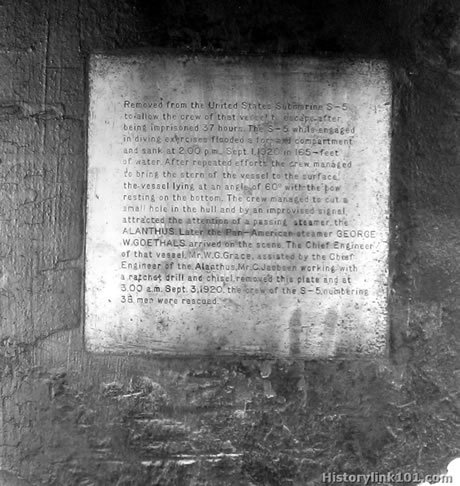 Removed from the United States Submarine S-5
to allow the crew of that vessel to escape after
being imprisoned 37 hours. The S-5 while engaged
in diving exercises flooded a forward compartment
and sank at 2.00 p.m. Sept. 1, 1920 in 165-feet
of water. After repeated efforts the crew managed
to bring the stern of the vessel to the surface,
the vessel lying at an angle of 60° with the bow
resting on the bottom. The crew managed to cut a
small hole in the hull and by an improvised signal
attracted the attention of a passing steamer, the
ALANTHUS. Later the Pan-American steamer GEORGE
W. GOETHALS arrived on the scene. The Chief Engineer
of that vessel, Mr. W.G. Grace, assisted by the Chief
Engineer of the Alanthus, Mr. C. Jacobsen working with
a ratchet drill and chisel, removed this plate and at
3.00 a.m. Sept. 3, 1920, the crew of the S-5, numbering
men were rescued.
Historylink101.com